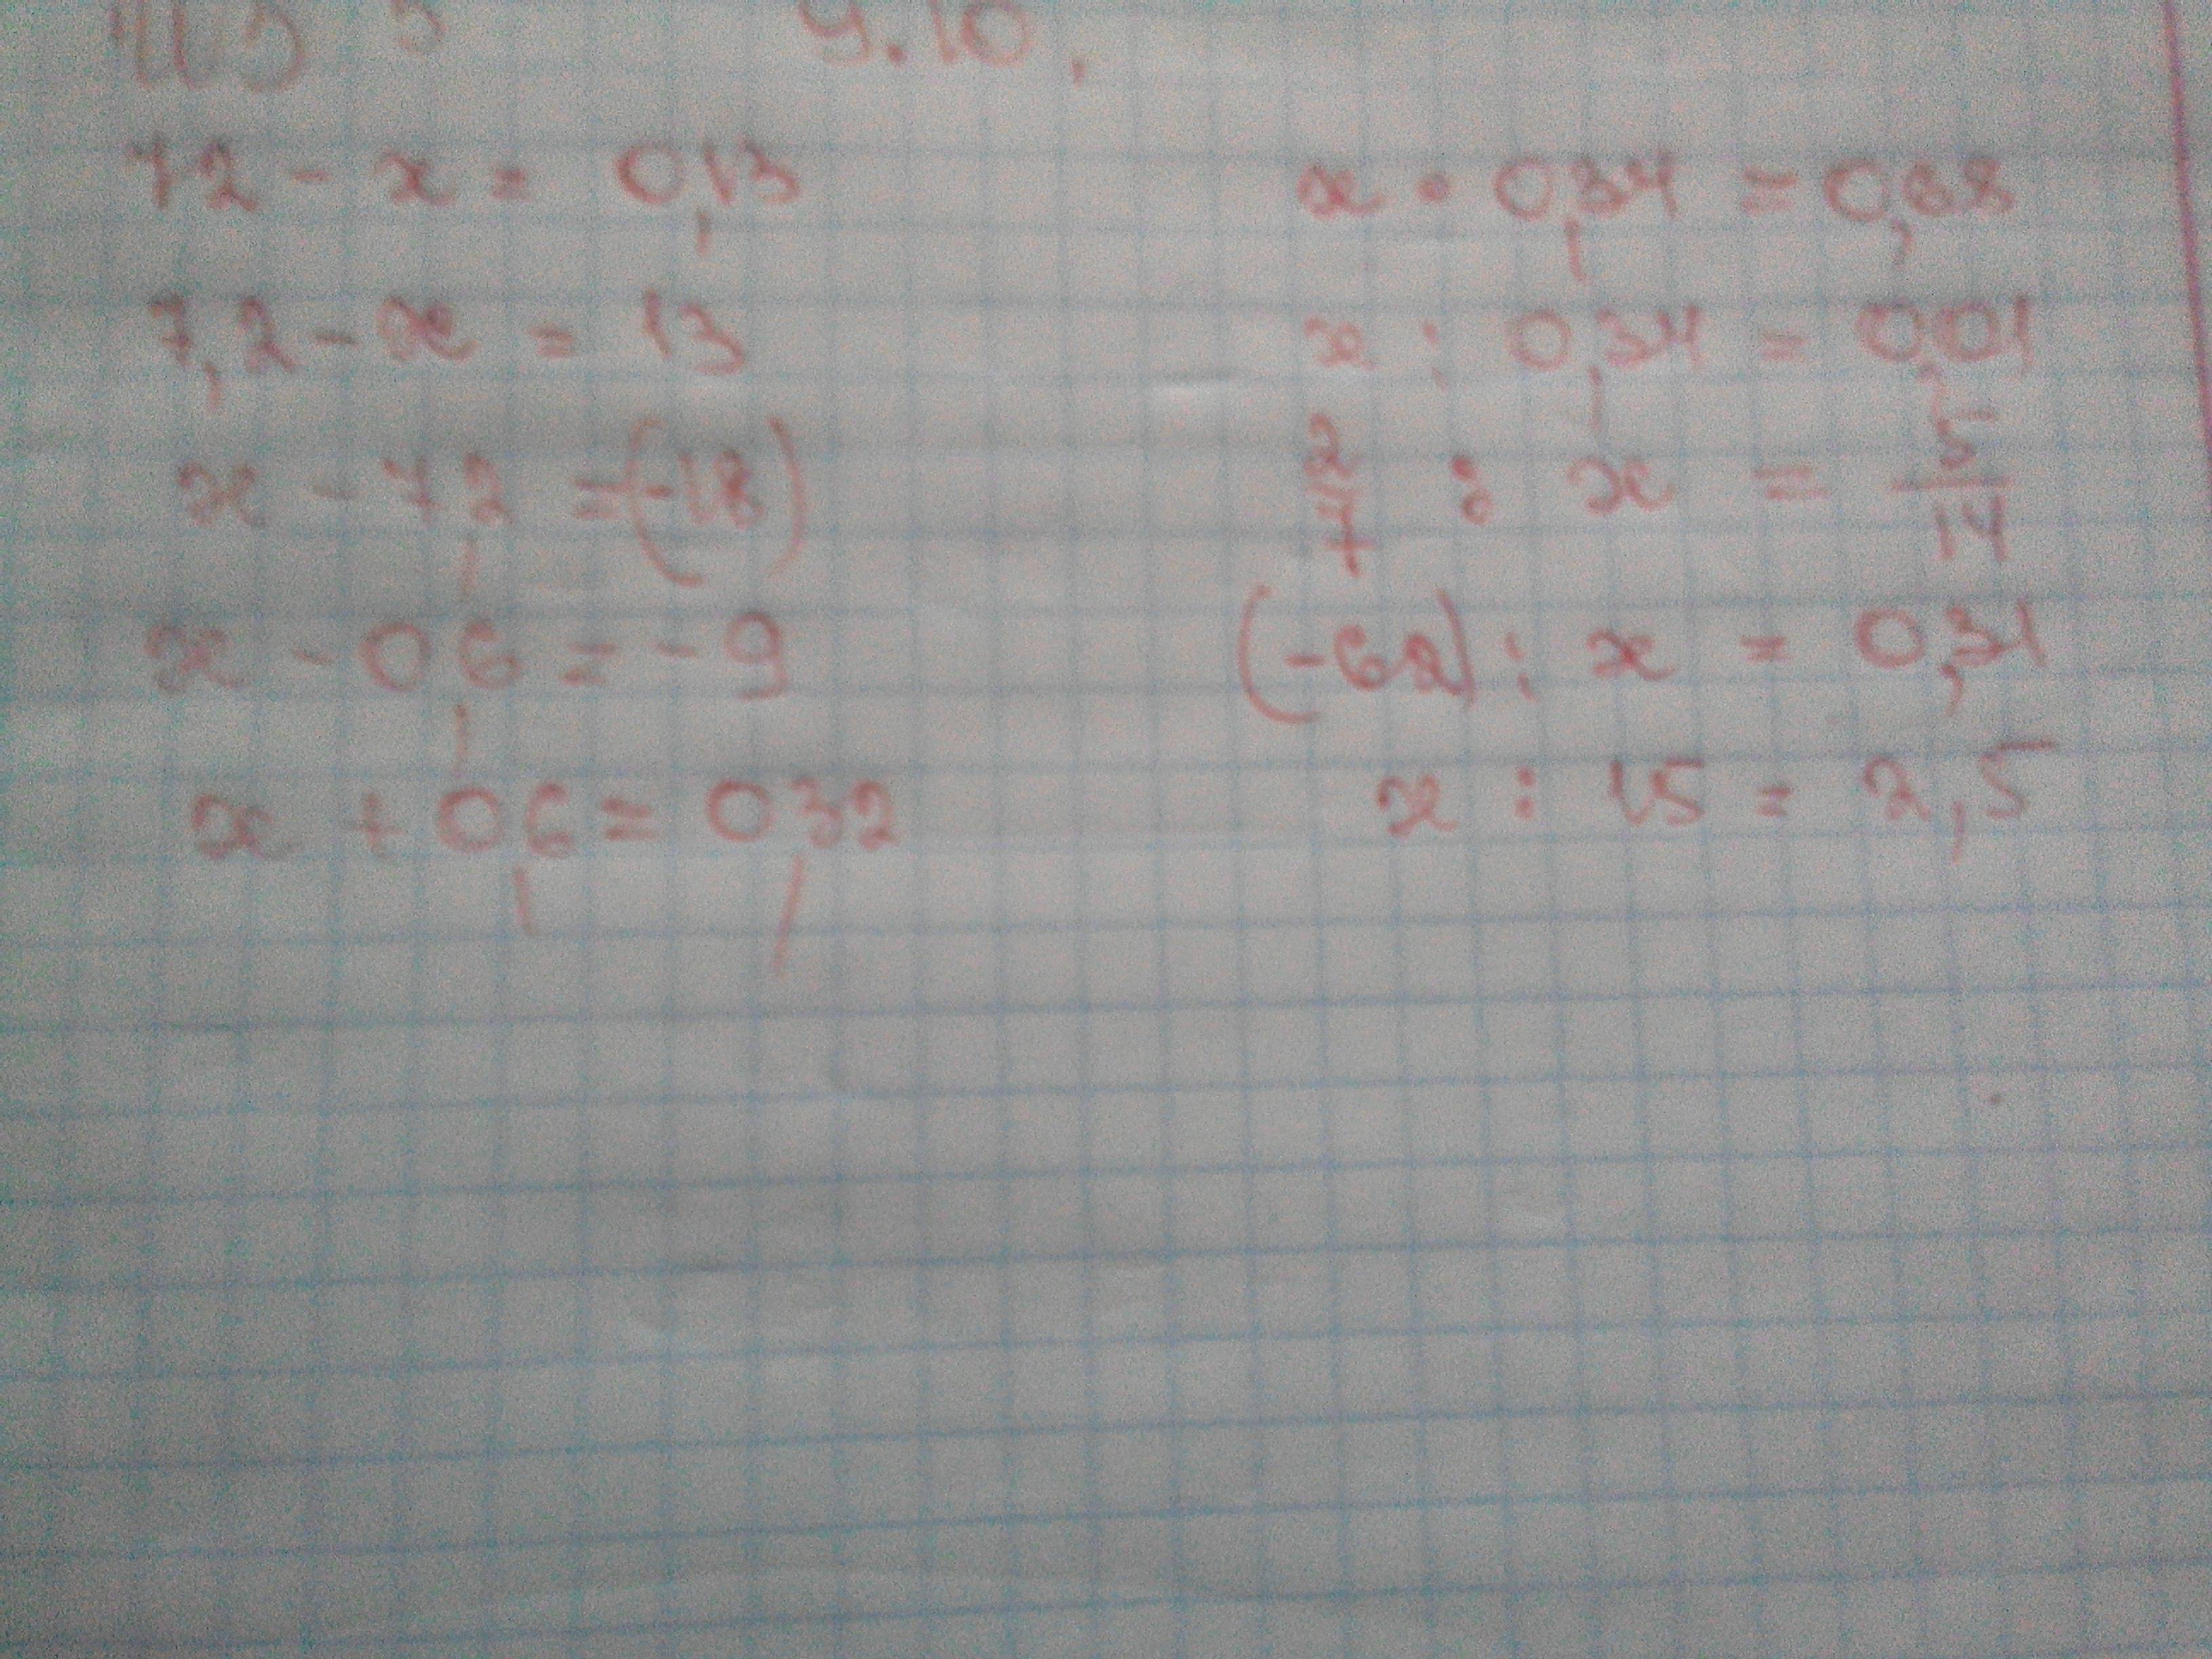 9.10.
72 - x = 0,13
7,2 - x = 13
x - 7,2 = (-18)
x - 0,6 = - 9
x + 0,6 = 0,32
x • 0,34 = 0,68
x : 0,34 = 0,01
2/7 : x = 5/14
(-62) : x = 0,31
x : 15 = 2,5